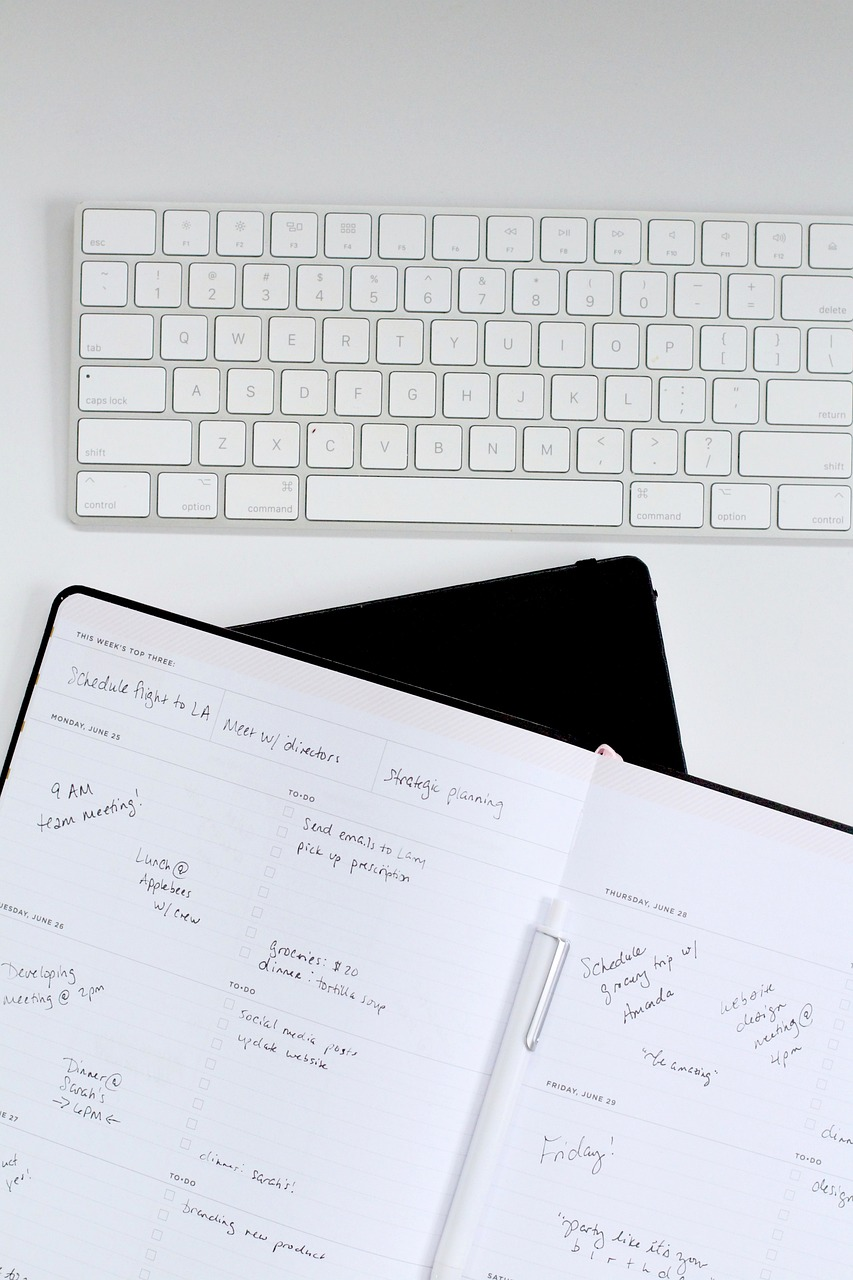 esc F1 F2 F3 F4 F5 F6 F7 F8 F9 F10 F11 F12
~ ! @ # $ % ^ & * ( ) — +
` 1 2 3 4 5 6 7 8 9 0 - = delete
tab Q W E R T Y U I O P { } |
[ ] \
caps lock A S D F G H J K L : "
; ' return
shift Z X C V B N M < > ?
, . / shift
control option command command option control
THIS WEEK'S TOP THREE:
Schedule flight to LA
Meet w/ directors
Strategic planning
MONDAY, JUNE 25
9 AM
team meeting!
Lunch @
Applebees
w/ crew
TO-DO
Send emails to
pick up prescription
groceries: $20
dinner: tortilla soup
UESDAY, JUNE 26
Developing
meeting @ 2pm
Dinner @
Sarah's
TO-DO
social media posts
update website
dinner: Sarah's!
27
yes!
TO-DO
branding new product
THURSDAY, JUNE 28
Schedule
grocery trip w/
Amanda
website
design
meeting @
4pm
"be amazing"
FRIDAY, JUNE 29
Friday!
"party like it's your
b i r t h d
TO-DO
design
SAT